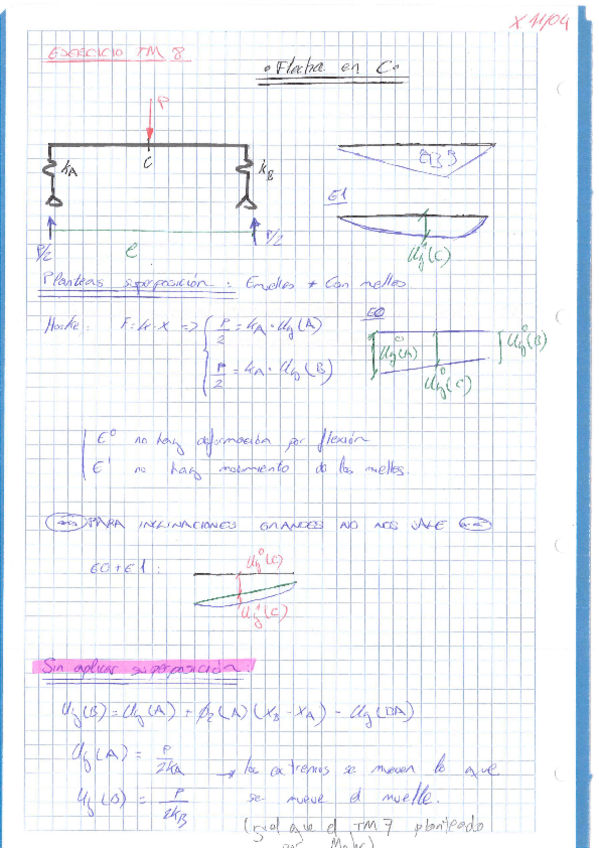 X 11/04
EJERCICIO TM 8
• Flecha en C •
P
C
kA
kB
P/2
P/2
l
E1
Uy¹(C)
Planteas superposición: + Con muelles
Hooke: F = k·X => { P/2 = kA · Uy(A)
P/2 = kA · Uy(B)
E0
Uy⁰(A)
Uy⁰(C)
Uy⁰(B)
E⁰ no hay deformación por flexión
E¹ no hay movimiento de los muelles.
PARA INCLINACIONES GRANDES NO NOS VALE
E0 + E1 :
Uy⁰(C)
Uy¹(C)
Sin aplicar superposición:
Uy(B) = Uy(A) + (A) (XB - XA) - Uy(BA)
Uy(A) = P/2kA → los extremos se mueven lo que
Uy(B) = P/2kB se mueve el muelle.
(igual que el TM 7 planteado
por Mohr)